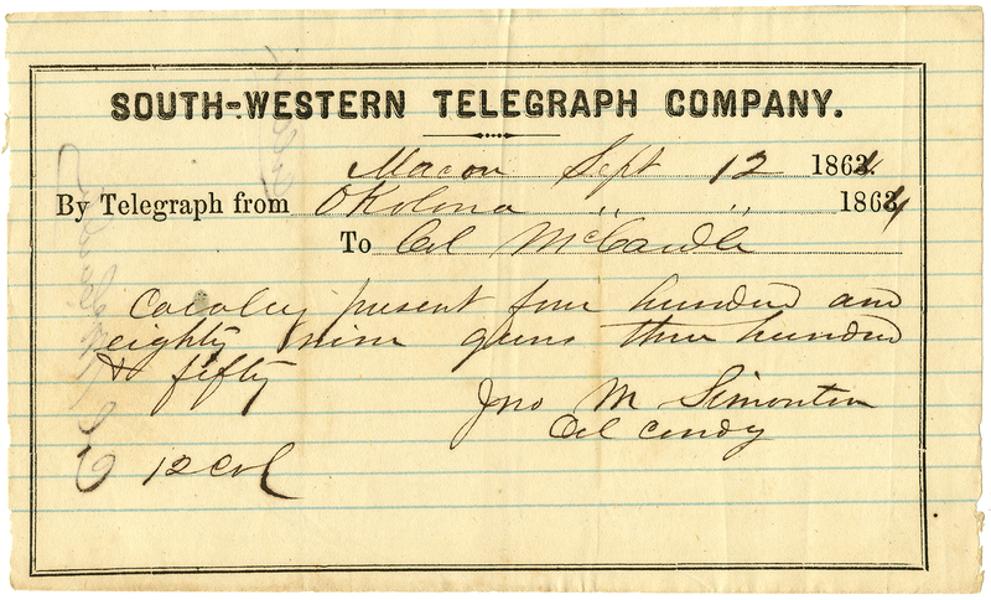 SOUTH-WESTERN TELEGRAPH COMPANY.
Macon Sept 12 1864
By Telegraph from Okolona " " 1864
To Col McCardle
Cavalry present four hundred and
eighty nine guns three hundred
& fifty
Jno M Simonton
Col comdg
12 Col